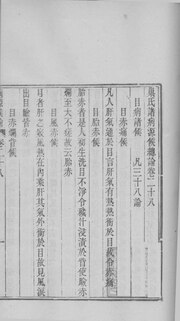 巢氏諸病源候總論卷二十八
目病諸候 凡三十八論
目赤痛候
凡人肝氣通於目言肝氣有熱熱衝於目故令赤痛
目胎赤候
胎赤者是人初生洗目不淨令穢汁浸漬於眥使瞼赤
爛至大不瘥故云胎赤
目風赤候
目者肝之竅風熱在內乘肝其氣外衝於目故見風淚
出目瞼眥赤
目赤爛眥候